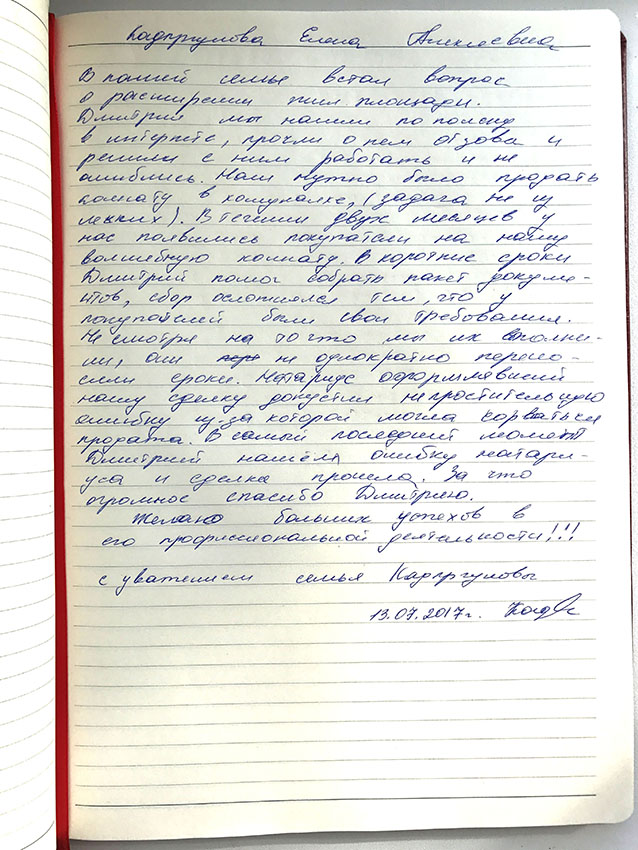 Кадыргулова Елена Алексеевна
В нашей семье встал вопрос
о расширении жил площади.
Дмитрия мы нашли по поиску
в интернете, прочли о нем отзовы и
решили с ним работать и не
ошиблись. Нам нужно было продать
комнату в комуналке, (задача не из
легких). В течении двух месяцев у
нас появились покупатели на нашу
волшебную комнату. В короткие сроки
Дмитрий помог собрать пакет докуме-
нтов, сбор осложнялся тем, что у
покупателей были свои требования.
Не смотря на то что мы их выполни-
ли, они не однократно перено-
сили сроки. Нотариус оформлявший
нашу сделку допустил непростительную
ошибку из-за которой могла сорваться
продажа. В самый последний момент
Дмитрий нашел ошибку натари-
уса и сделка прошла. За что
огромное спасибо Дмитрию.
Желаю больших успехов в
его профессиональной деятельности!!!
с уважением семья Кадыргуловы
13.07.2017г.